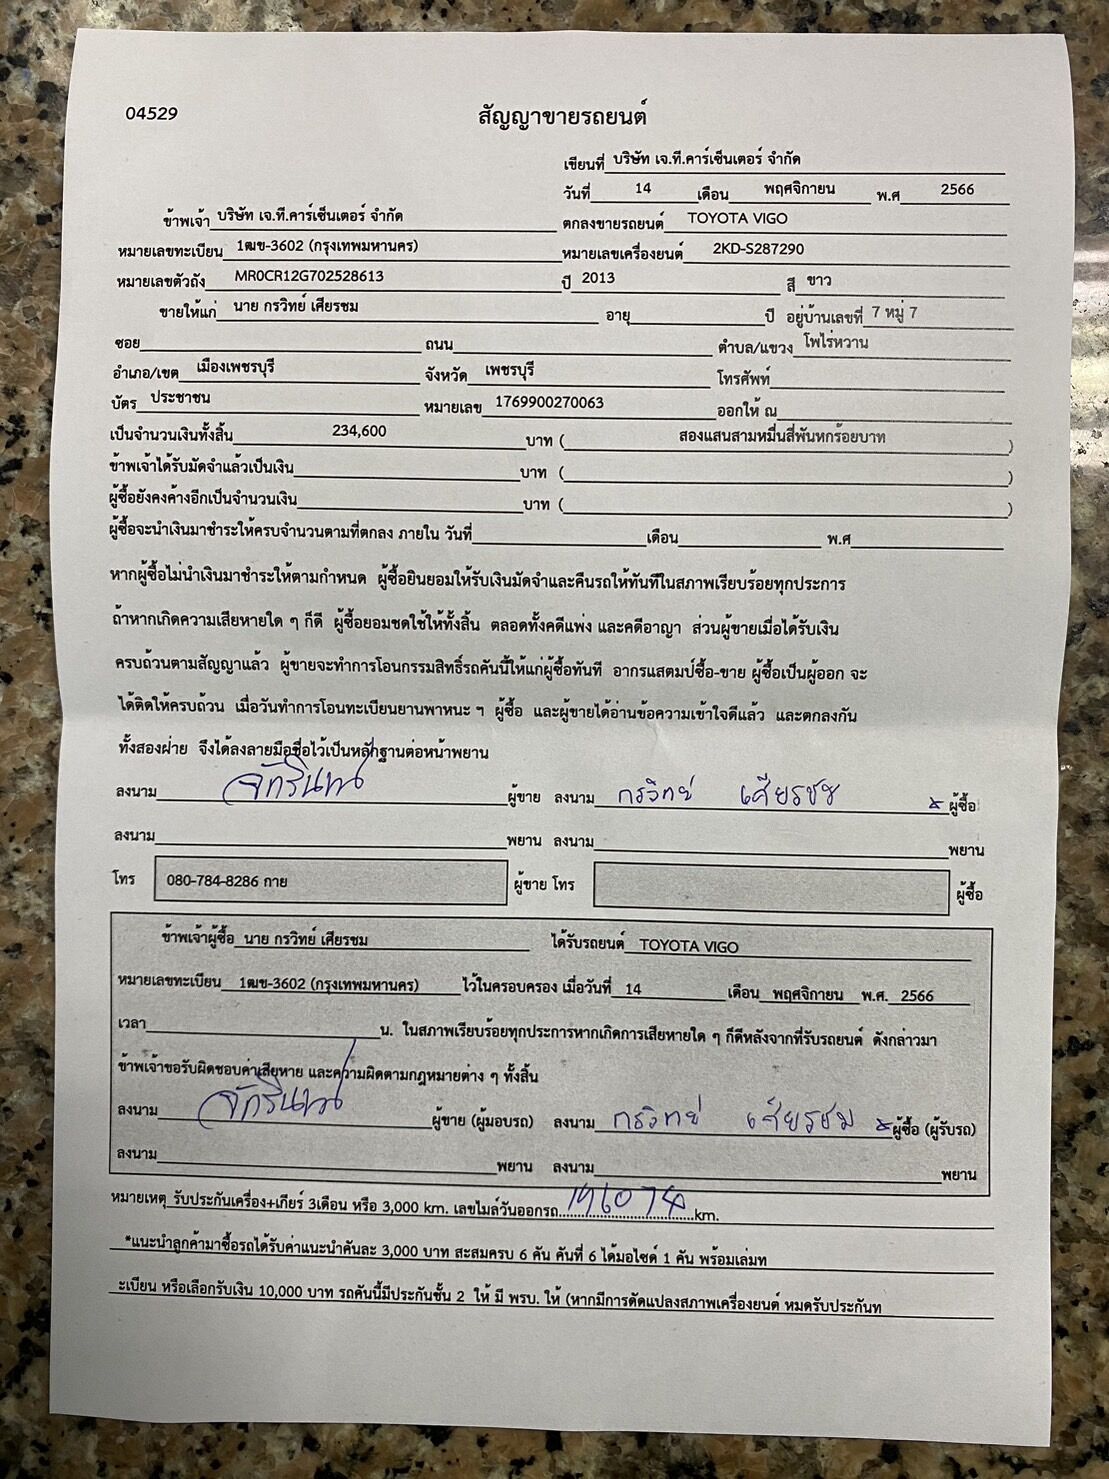 04529
สัญญาขายรถยนต์
เขียนที่ บริษัท เจ.ที.คาร์เซ็นเตอร์ จำกัด
วันที่ 14 เดือน พฤศจิกายน พ.ศ 2566
ข้าพเจ้า บริษัท เจ.ที.คาร์เซ็นเตอร์ จำกัด ตกลงขายรถยนต์ TOYOTA VIGO
หมายเลขทะเบียน 1ฒข-3602 (กรุงเทพมหานคร) หมายเลขเครื่องยนต์ 2KD-S287290
หมายเลขตัวถัง MR0CR12G702528613 ปี 2013 สี ขาว
ขายให้แก่ นาย กรวิทย์ เศียรชม อายุ ปี อยู่บ้านเลขที่ 7 หมู่ 7
ซอย ถนน ตำบล/แขวง โพไร่หวาน
อำเภอ/เขต เมืองเพชรบุรี จังหวัด เพชรบุรี โทรศัพท์
บัตร ประชาชน หมายเลข 1769900270063 ออกให้ ณ
เป็นจำนวนเงินทั้งสิ้น 234,600 บาท ( สองแสนสามหมื่นสี่พันหกร้อยบาท )
ข้าพเจ้าได้รับมัดจำแล้วเป็นเงิน บาท ( )
ผู้ซื้อยังคงค้างอีกเป็นจำนวนเงิน บาท ( )
ผู้ซื้อจะนำเงินมาชำระให้ครบจำนวนตามที่ตกลง ภายใน วันที่ เดือน พ.ศ
หากผู้ซื้อไม่นำเงินมาชำระให้ตามกำหนด ผู้ซื้อยินยอมให้รับเงินมัดจำและคืนรถให้ทันทีในสภาพเรียบร้อยทุกประการ
ถ้าหากเกิดความเสียหายใด ๆ ก็ดี ผู้ซื้อยอมชดใช้ให้ทั้งสิ้น ตลอดทั้งคดีแพ่ง และคดีอาญา ส่วนผู้ขายเมื่อได้รับเงิน
ครบถ้วนตามสัญญาแล้ว ผู้ขายจะทำการโอนกรรมสิทธิ์รถคันนี้ให้แก่ผู้ซื้อทันที อากรแสตมป์ซื้อ-ขาย ผู้ซื้อเป็นผู้ออก จะ
ได้ติดให้ครบถ้วน เมื่อวันทำการโอนทะเบียนยานพาหนะ ฯ ผู้ซื้อ และผู้ขายได้อ่านข้อความเข้าใจดีแล้ว และตกลงกัน
ทั้งสองฝ่าย จึงได้ลงลายมือชื่อไว้เป็นหลักฐานต่อหน้าพยาน
ลงนาม ผู้ขาย ลงนาม กรวิทย์ เศียรชม x ผู้ซื้อ
ลงนาม พยาน ลงนาม พยาน
โทร 080-784-8286 กาย ผู้ขาย โทร ผู้ซื้อ
ข้าพเจ้าผู้ซื้อ นาย กรวิทย์ เศียรชม ได้รับรถยนต์ TOYOTA VIGO
หมายเลขทะเบียน 1ฒข-3602 (กรุงเทพมหานคร) ไว้ในครอบครอง เมื่อวันที่ 14 เดือน พฤศจิกายน พ.ศ. 2566
เวลา น. ในสภาพเรียบร้อยทุกประการหากเกิดการเสียหายใด ๆ ก็ดีหลังจากที่รับรถยนต์ ดังกล่าวมา
ข้าพเจ้าขอรับผิดชอบค่าเสียหาย และความผิดตามกฎหมายต่าง ๆ ทั้งสิ้น
ลงนาม ผู้ขาย (ผู้มอบรถ) ลงนาม กรวิทย์ เศียรชม x ผู้ซื้อ (ผู้รับรถ)
ลงนาม พยาน ลงนาม พยาน
หมายเหตุ รับประกันเครื่อง+เกียร์ 3เดือน หรือ 3,000 km. เลขไมล์วันออกรถ km.
*แนะนำลูกค้ามาซื้อรถได้รับค่าแนะนำคันละ 3,000 บาท สะสมครบ 6 คัน คันที่ 6 ได้มอไซด์ 1 คัน พร้อมเล่มท
ะเบียน หรือเลือกรับเงิน 10,000 บาท รถคันนี้มีประกันชั้น 2 ให้ มี พรบ. ให้ (หากมีการดัดแปลงสภาพเครื่องยนต์ หมดรับประกันท